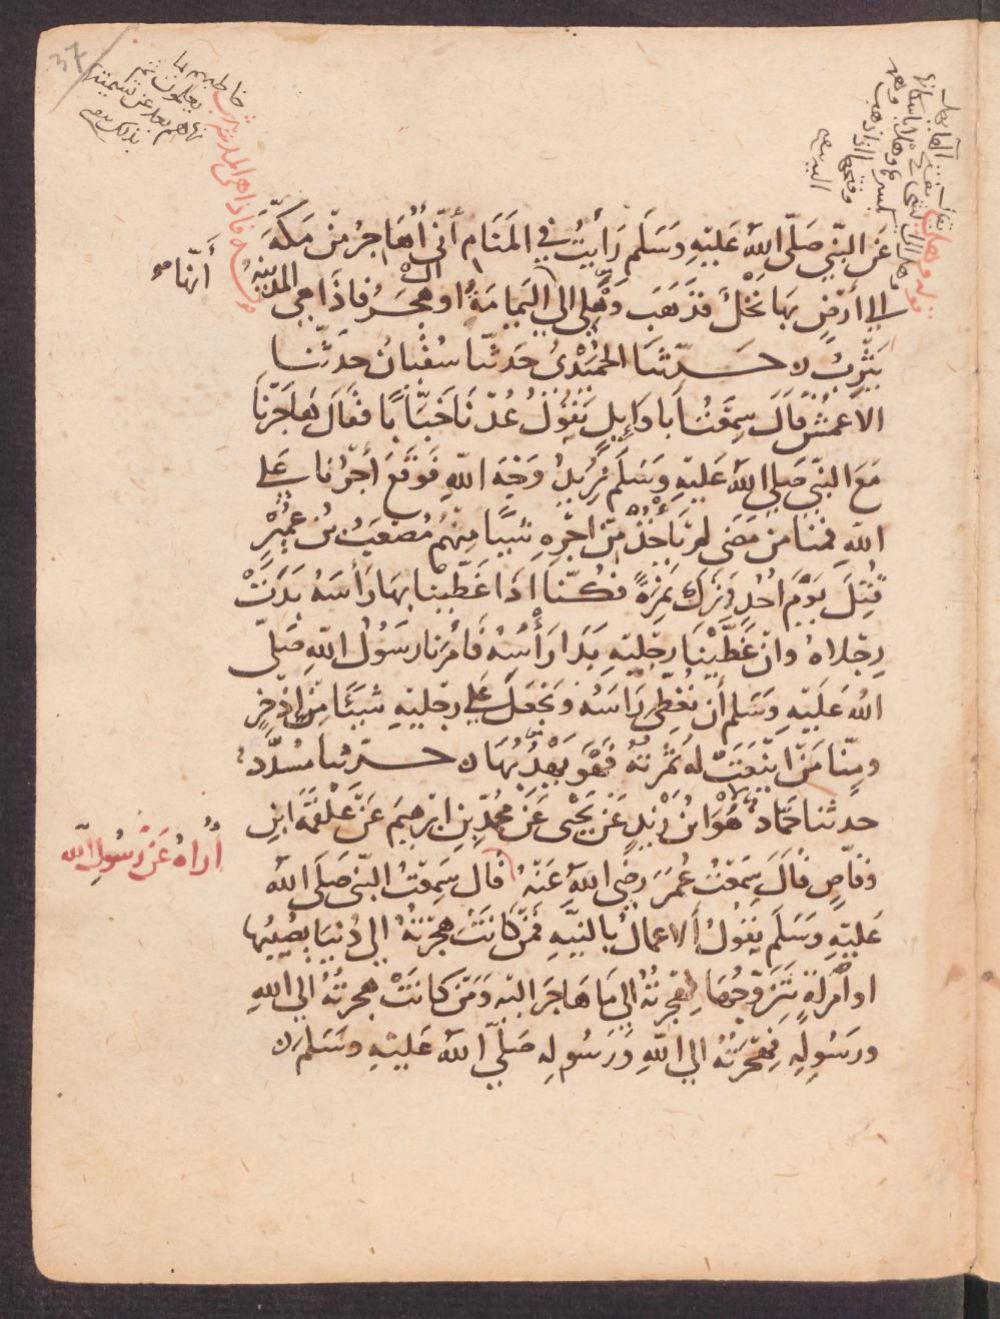 37
خاطبهم بما
يعلمون ثم
نهاهم بعد عن تسميتها
بذلك
قوله فاذا هي المدينة يثرب
قوله وهلي
عَن النبي صَلّى اللهُ عَليهِ وَسَلم رَأيتُ في المَنَام أَنّي أُهَاجرُ منْ مَكّةَ
الي أرضٍ بهَا نَخْلٌ فذَهَبَ وَهَلي الي اليَمَامَةُ او الهجَرُ فاذَا هي المدينة
أنها
يَثْربُ ه حَدّثنَا الحُمَيْدِيُّ حَدثنا سُفْيَانُ حدثنا
الاعمَشُ قَالَ سَمِعْتُ أبا وَايِلٍ يَقُولُ عُدْنَا خَبّابًا فقَال هَاجَرْنَا
مَعَ النبي صَلى اللهُ عَليْهِ وَسَلّم نُرِيدُ وَجْهَ اللهِ فوَقَعَ أَجْرُنا عَلي
اللهِ فمنا مَنْ مَضَى لم يَأخُذْ مِنْ اجْرِهِ شيئًا مِنْهُمْ مُصْعَبُ بْن عُمَيْرٍ
قُتِلَ يَوْمَ أُحُدٍ وتَرَكَ نَمِرَةً فكُنّا اذَا غَطّيْنَا بهَا رَأسَهُ بَدَتْ
رِجلاهُ وان غَطّيْنَا رجْليْهِ بَدَا رَأْسُهُ فَأمَرَنا رَسُولُ اللهِ صَلّى
اللهُ عَليْهِ وَسَلم أن نُغَطّي رَاسَهُ وَنَجْعَلَ عَلي رجليْهِ شيئًا مِنْ إِذْخِرٍ
ومنّا مَنْ ايْنَعَتْ لهُ ثَمْرَتُهُ فَهْوَ يَهْدِبُهَا ه حَدّثنا مُسَدّدٌ
حدثنا حَمّادٌ هُوَ ابْنُ زَيْدٍ عَنْ يَحْيَى عَنْ مُحَمّدِ بْنِ ابْرهِيمَ عَنْ عَلْقَمَةَ ابْنِ
وَقّاصٍ قَالَ سَمِعْتُ عُمَرَ رضي اللهُ عَنْهُ قال سَمِعْتُ النبي صَلى اللهُ
أُراهُ عَنْ رَسُولِ اللّه
عَليْهِ وَسَلم يَقُولُ الاعمالُ بالنيّهِ فَمَنْ كَانَتْ هِجْرَتُهُ الي دُنْيَا يُصيبُها
او أمْرَأةٍ يَتَزَوّجُهَا فهِجْرَتُهُ الي مَا هَاجَرَ اليْهِ وَمَنْ كانَتْ هجرتُهُ الي اللهِ
ورَسُولِهِ فهِجْرَتُهُ الي اللهِ وَرَسُولهِ صَلّى اللهُ عَليْهِ وسَلم ه